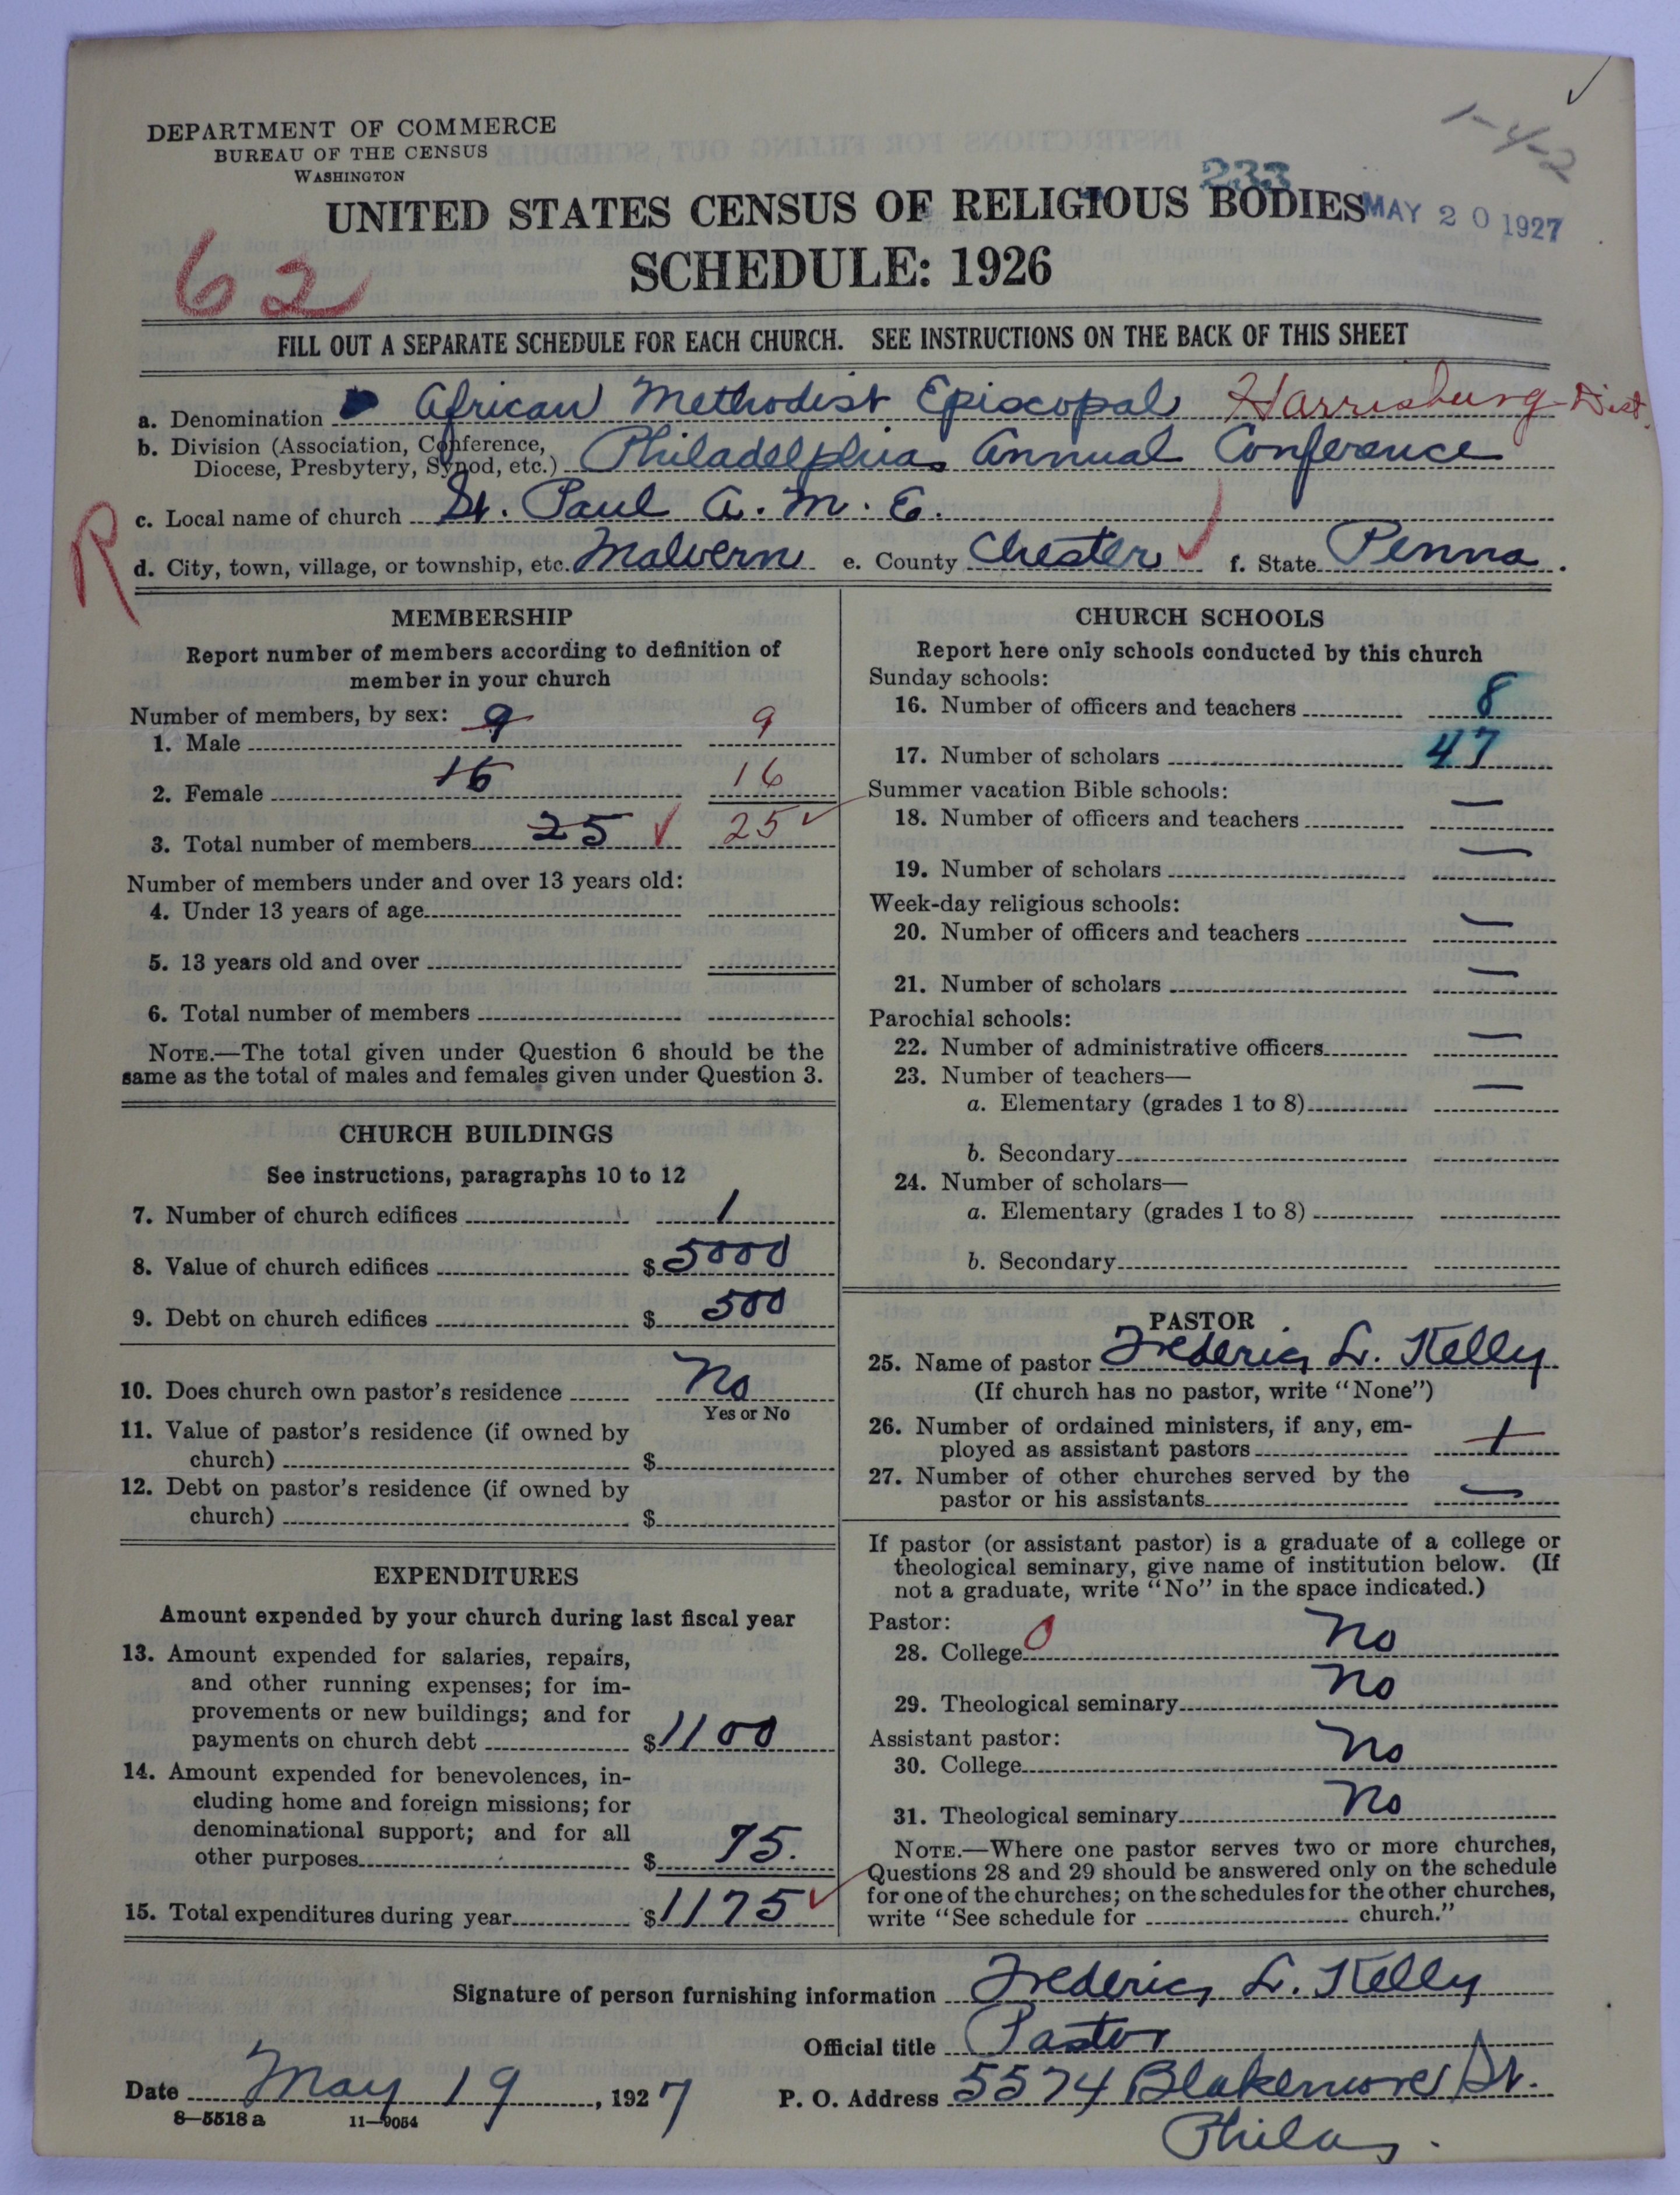 1-4-2
DEPARTMENT OF COMMERCE
BUREAU OF THE CENSUS
WASHINGTON
233
UNITED STATES CENSUS OF RELIGIOUS BODIES
MAY 20 1927
62
SCHEDULE: 1926
FILL OUT A SEPARATE SCHEDULE FOR EACH CHURCH. SEE INSTRUCTIONS ON THE BACK OF THIS SHEET
a. Denomination African Methodist Episcopal Harrisburg Dist.
b. Division (Association, Conference,
Diocese, Presbytery, Synod, etc.) Philadelphia Annual Conference
R
c. Local name of church St. Paul A. M. E.
d. City, town, village, or township, etc. Malvern e. County Chester f. State Penna.
MEMBERSHIP
Report number of members according to definition of
member in your church
Number of members, by sex:
1. Male 9 9
2. Female 16 16
3. Total number of members 25 25
Number of members under and over 13 years old:
4. Under 13 years of age
5. 13 years old and over
6. Total number of members
NOTE.—The total given under Question 6 should be the
same as the total of males and females given under Question 3.
CHURCH BUILDINGS
See instructions, paragraphs 10 to 12
7. Number of church edifices 1
8. Value of church edifices $5000
9. Debt on church edifices $ 500
10. Does church own pastor's residence No
Yes or No
11. Value of pastor's residence (if owned by
church) $
12. Debt on pastor's residence (if owned by
church) $
EXPENDITURES
Amount expended by your church during last fiscal year
13. Amount expended for salaries, repairs,
and other running expenses; for im-
provements or new buildings; and for
payments on church debt $1100
14. Amount expended for benevolences, in-
cluding home and foreign missions; for
denominational support; and for all
other purposes $ 75.
15. Total expenditures during year $1175
CHURCH SCHOOLS
Report here only schools conducted by this church
Sunday schools:
16. Number of officers and teachers 8
17. Number of scholars 47
Summer vacation Bible schools:
18. Number of officers and teachers —
19. Number of scholars —
Week-day religious schools:
20. Number of officers and teachers —
21. Number of scholars —
Parochial schools:
22. Number of administrative officers —
23. Number of teachers—
a. Elementary (grades 1 to 8) —
b. Secondary
24. Number of scholars—
a. Elementary (grades 1 to 8)
b. Secondary
PASTOR
25. Name of pastor Frederic L. Kelly
(If church has no pastor, write "None")
26. Number of ordained ministers, if any, em-
ployed as assistant pastors 1
27. Number of other churches served by the
pastor or his assistants —
If pastor (or assistant pastor) is a graduate of a college or
theological seminary, give name of institution below. (If
not a graduate, write "No" in the space indicated.)
Pastor:
28. College 0 No
29. Theological seminary No
Assistant pastor:
30. College No
31. Theological seminary No
NOTE.—Where one pastor serves two or more churches,
Questions 28 and 29 should be answered only on the schedule
for one of the churches; on the schedules for the other churches,
write "See schedule for church."
Signature of person furnishing information Frederic L. Kelly
Official title Pastor
Date May 19, 1927 P. O. Address 5574 Blakemore St.
8—5518a 11—9054
Phila.